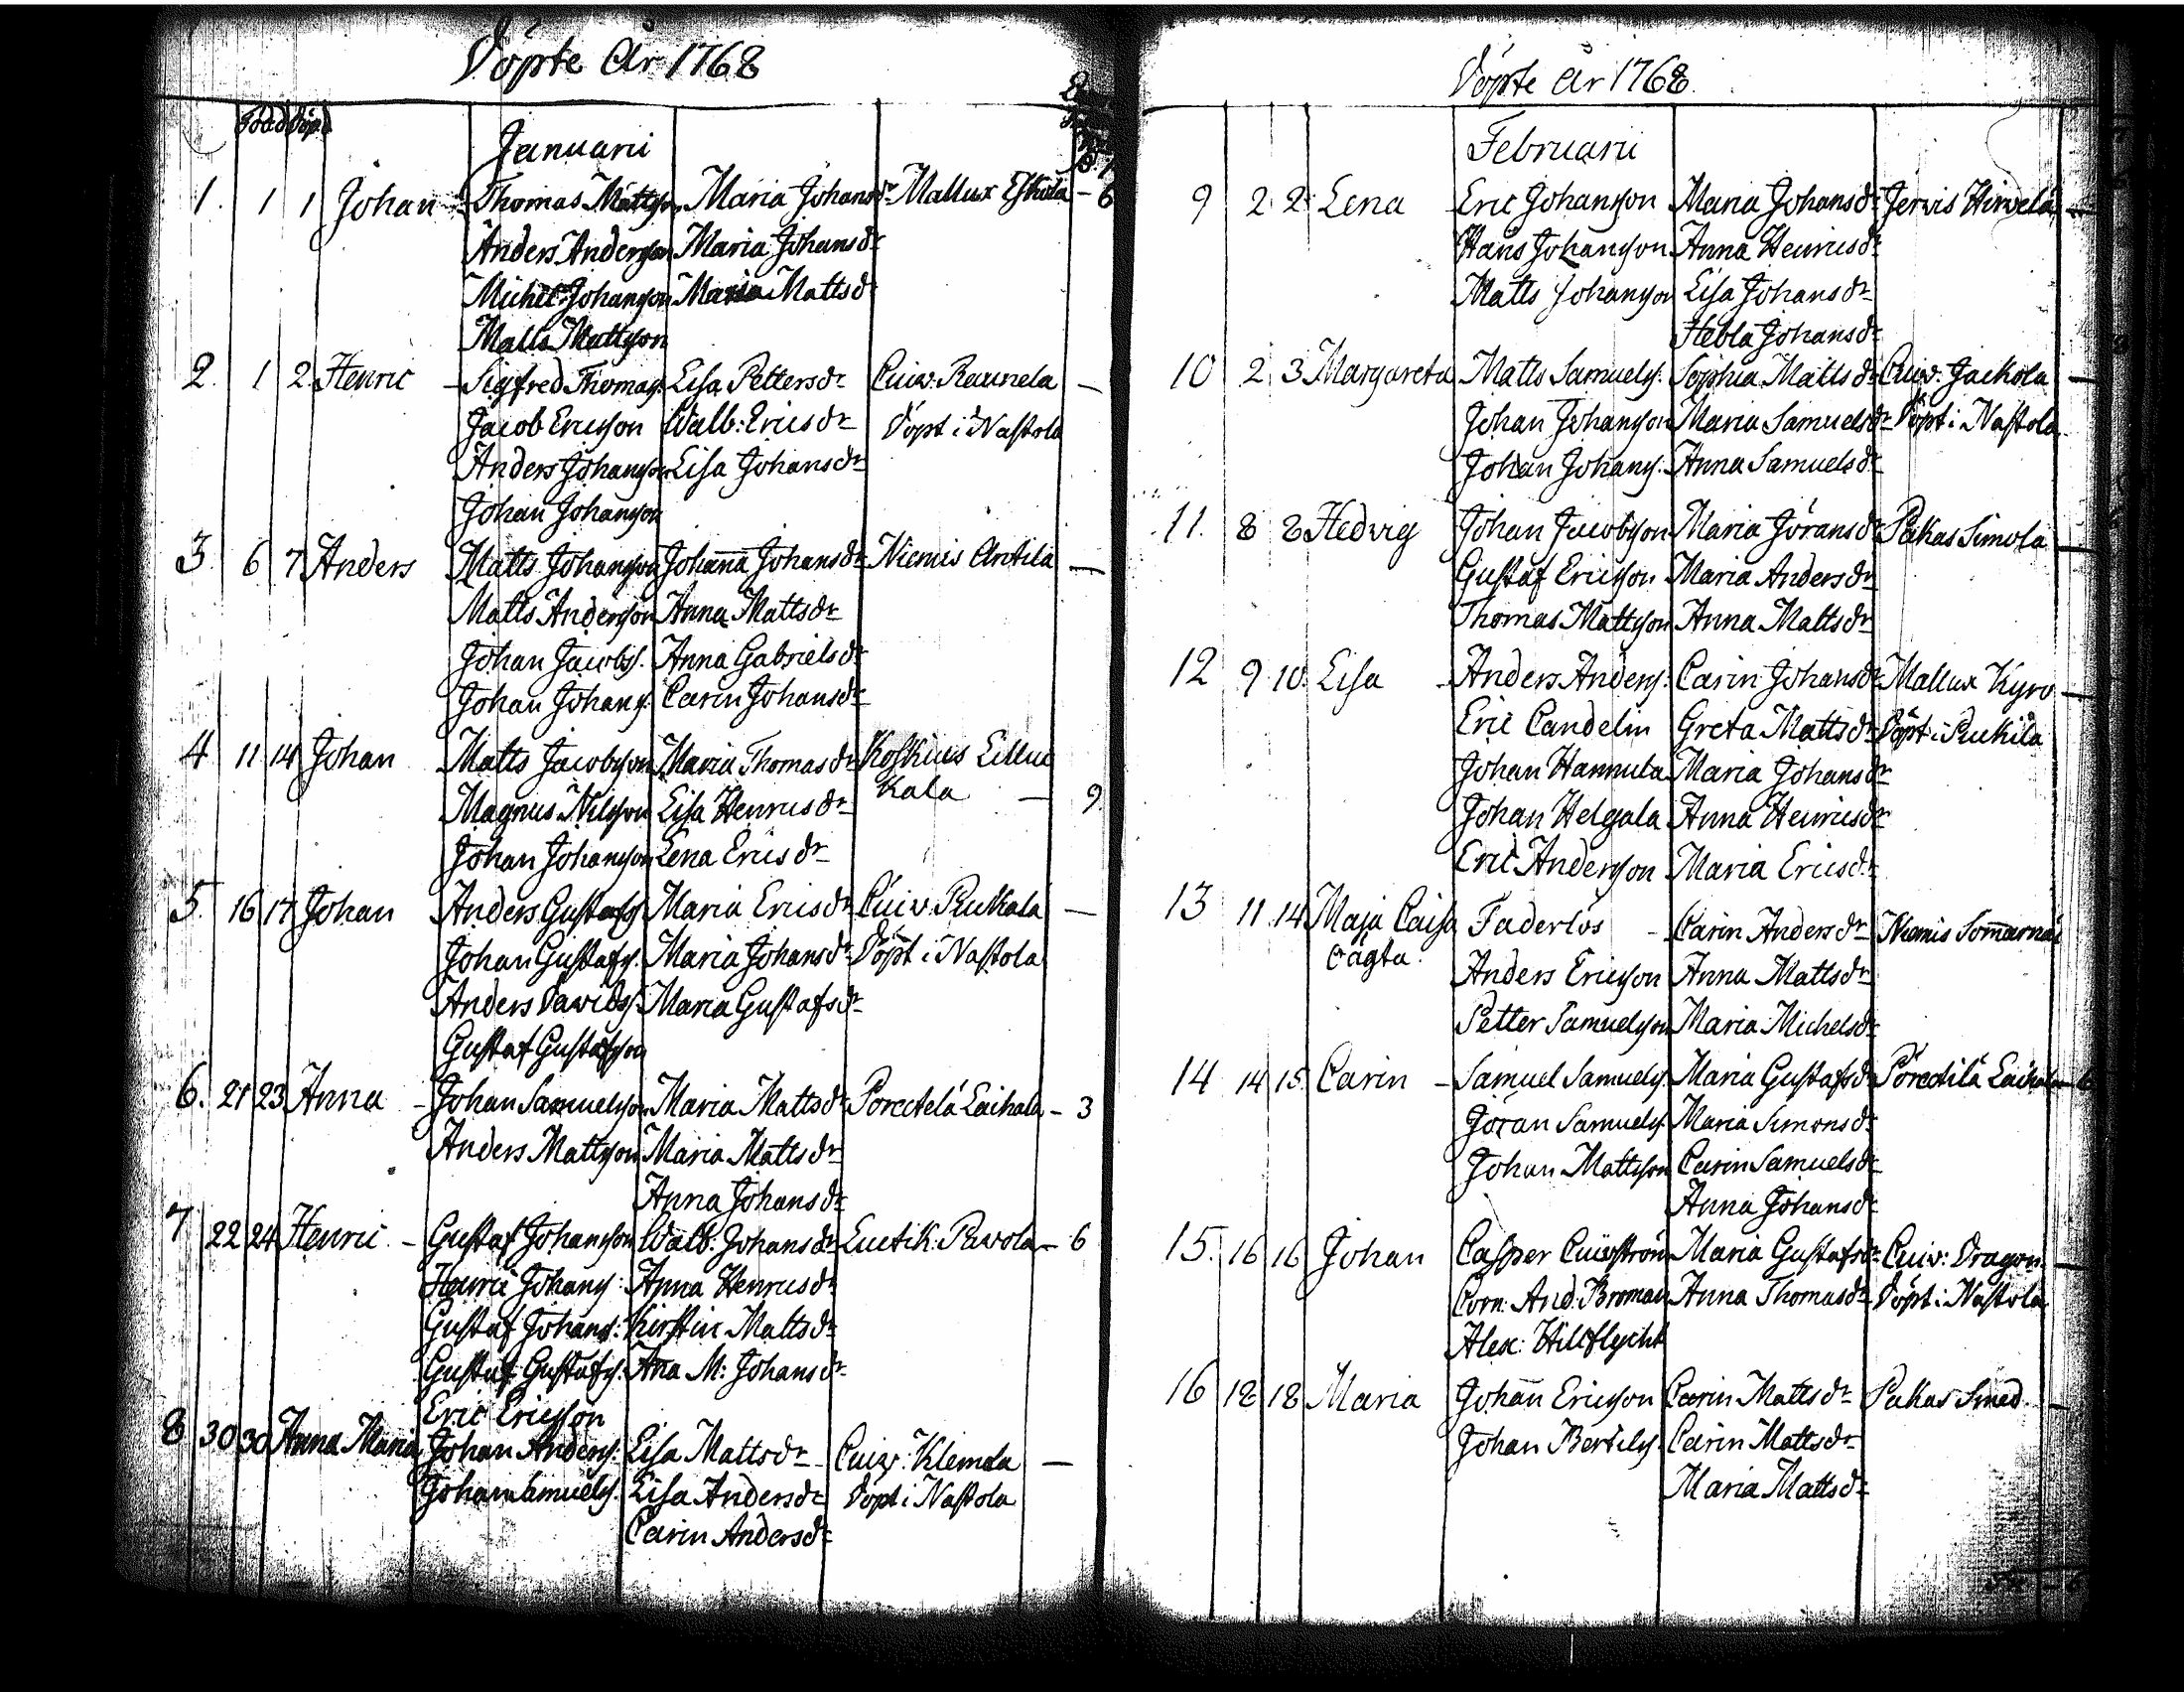 Döpte År 1768
Född Döpt
Januarii
1. 1 1 Johan - Thomas Mattson Maria Johansdr Mallux Eskola - 6
Anders Anderson Maria Johansdr
Michel Johanson Maria Mattsdr
Matts Mattson
2. 1 2. Henric - Sigfred Thomas: Lisa Pettersdr Cuiv: Raunela -
Jacob Ericson Walb: Ericsdr Döpt i Nastola
Anders Johanson Lisa Johansdr
Johan Johanson
3. 6 7 Anders Matts Johanson Johana Johansdr Niemis Antila -
Matts Anderson Anna Mattsdr
Johan Jacobs. Anna Gabrielsdr
Johan Johans. Carin Johansdr
4 11 14 Johan Matts Jacobson Maria Thomasdr Koskius Lillu
Magnus Nilsson Lisa Henricsdr Kala - 9
Johan Johanson Lena Ericsdr
5. 16 17 Johan Anders Gustafs. Maria Ericsdr Cuiv: Rukala -
Johan Gustafs. Maria Johansdr Döpt i Nastola
Anders Davids. Maria Gustafsdr
Gustaf Gustafson
6. 21 23 Anna - Johan Samuelson Maria Mattsdr Poretelä Laihala - 3
Anders Mattson Maria Mattsdr
Anna Johansdr
7 22 24 Henric - Gustaf Johanson Walb: Johansdr Luetik: Pavola - 6
Henric Johans: Anna Henricsdr
Gustaf Johans: Kirstin Mattsdr
Gustaf Gustafs: Ana M: Johansdr
Eric Ericsson
8 30 30 Anna Maria Johan Anders: Lisa Mattsdr Cuiv: Klemola -
Johan Samuels. Lisa Andersdr Döpt i Nastola
Carin Andersdr
Döpte År 1768.
Februarii
9 2 2 Lena Eric Johanson Maria Johansdr Jervis Hirvelä -
Hans Johanson Anna Henricsdr
Matts Johanson Lisa Johansdr
Hebla Johansdr
10 2 3 Margareta Matts Samuels: Sophia Mattsdr Cuiv: Jackola -
Johan Johanson Maria Samuelsdr Döpt i Nastola
Johan Johans: Anna Samuelsdr
11. 8 8 Hedvig Johan Jacobson Maria Jöransdr Pakas Simola -
Gustaf Ericson Maria Andersdr
Thomas Mattson Anna Mattsdr
12 9 10. Lisa - Anders Anders: Carin Johansdr Mallux Kyrö -
Eric Candelin Greta Mattsdr Döpt i
Johan Hannula Maria Johansdr
Johan Helgala Anna Henricsdr
Eric Anderson Maria Ericsdr
13 11 14 Maja Caisa Faderlös - Carin Andersdr Niemis
oägta. Anders Ericson Anna Mattsdr
Petter Samuelson Maria Michelsdr
14 14 15. Carin - Samuel Samuels: Maria Gustafsdr Pöretilä Laihala - 6
Jöran Samuels: Maria Simonsdr
Johan Mattson Carin Samuelsdr
Anna Johansdr
15. 16 16 Johan Casper Cuivström Maria Gustafsdr Cuiv: Dragon -
Corn: And: Broman Anna Thomasdr Döpt i Nastola
Alex:
16 18 18 Maria Johan Ericson Carin Mattsdr Pakas Smed. -
Johan Bertils: Carin Mattsdr
Maria Mattsdr